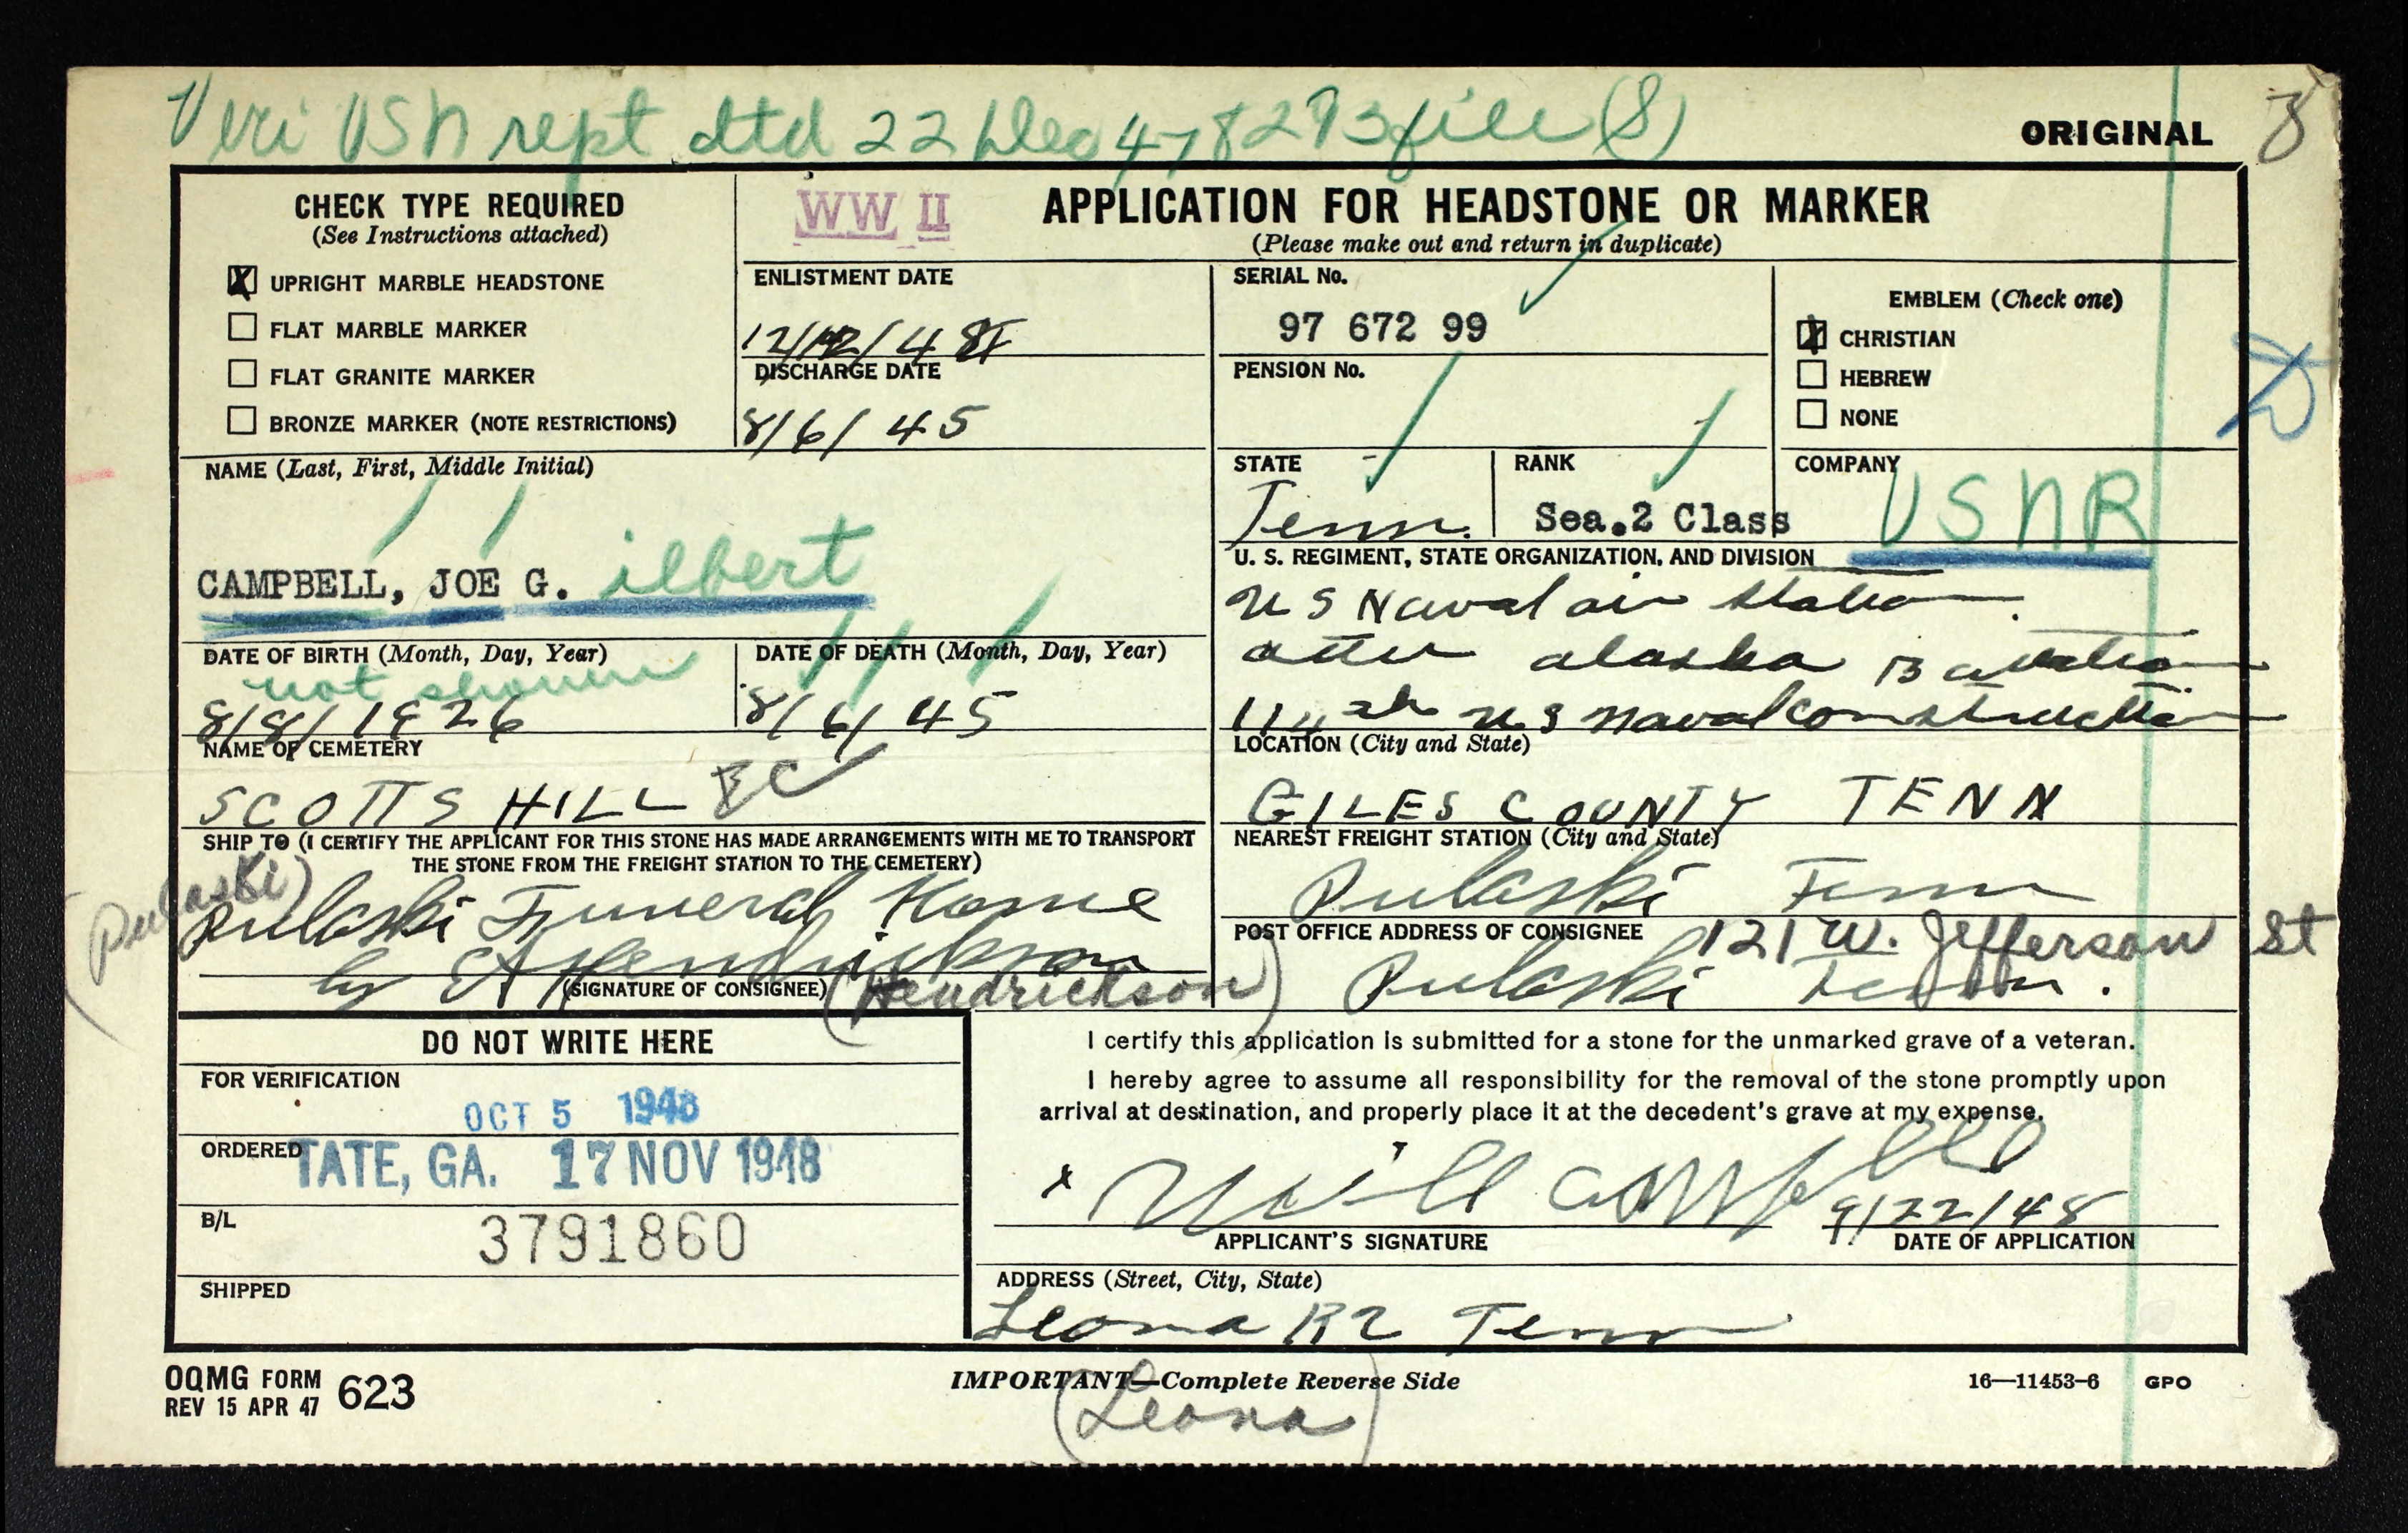 Veri USN rept dtd 22 Dec 47 8293 file (8)
ORIGINAL
CHECK TYPE REQUIRED
(See Instructions attached)
X UPRIGHT MARBLE HEADSTONE
FLAT MARBLE MARKER
FLAT GRANITE MARKER
BRONZE MARKER (NOTE RESTRICTIONS)
WW II
APPLICATION FOR HEADSTONE OR MARKER
(Please make out and return in duplicate)
ENLISTMENT DATE
DISCHARGE DATE
8/6/45
SERIAL No.
97 672 99
PENSION No.
EMBLEM (Check one)
X CHRISTIAN
HEBREW
NONE
NAME (Last, First, Middle Initial)
CAMPBELL, JOE G. ilbert
STATE
Tenn.
RANK
Sea.2 Class
COMPANY
USNR
U. S. REGIMENT, STATE ORGANIZATION, AND DIVISION
U S Naval air station
alaska
U S Naval Construction
DATE OF BIRTH (Month, Day, Year)
not shown
8/8/1926
DATE OF DEATH (Month, Day, Year)
8/6/45
NAME OF CEMETERY
SCOTTS HILL
LOCATION (City and State)
GILES COUNTY TENN
SHIP TO (I CERTIFY THE APPLICANT FOR THIS STONE HAS MADE ARRANGEMENTS WITH ME TO TRANSPORT
THE STONE FROM THE FREIGHT STATION TO THE CEMETERY)
(Pulaski)
Pulaski Funeral Home
by E A Hendrickson
(SIGNATURE OF CONSIGNEE) (Hendrickson)
NEAREST FREIGHT STATION (City and State)
Pulaski Tenn
POST OFFICE ADDRESS OF CONSIGNEE 121 W. Jefferson St
Pulaski Tenn.
DO NOT WRITE HERE
FOR VERIFICATION
OCT 5 1948
ORDERED
TATE, GA. 17 NOV 1948
B/L
3791860
SHIPPED
I certify this application is submitted for a stone for the unmarked grave of a veteran.
I hereby agree to assume all responsibility for the removal of the stone promptly upon
arrival at destination, and properly place it at the decedent's grave at my expense.
x Will Campbell 9/22/48
APPLICANT'S SIGNATURE
DATE OF APPLICATION
ADDRESS (Street, City, State)
Leona R2 Tenn
OQMG FORM 623
REV 15 APR 47
IMPORTANT—Complete Reverse Side
(Leona)
16—11453-6 GPO